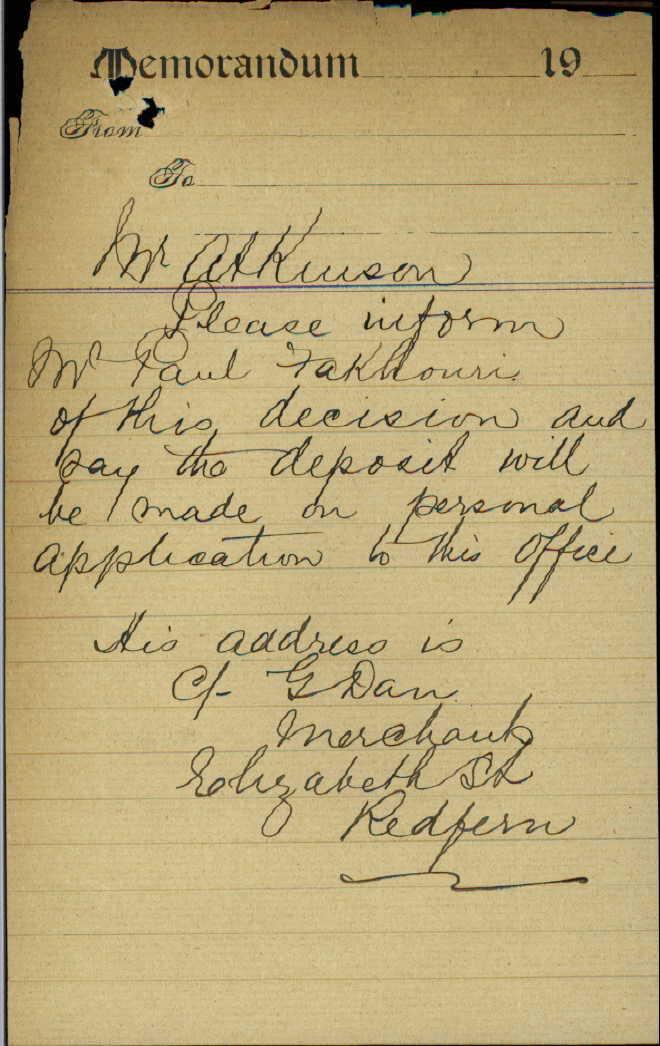 Memorandum 19
From
To
Mr Atkinson
Please inform
Mr Paul Fakhouri
of this decision and
say the deposit will
be made on personal
application to this Office
His address is
C/- G Dan
Merchant
Elizabeth St
Redfern